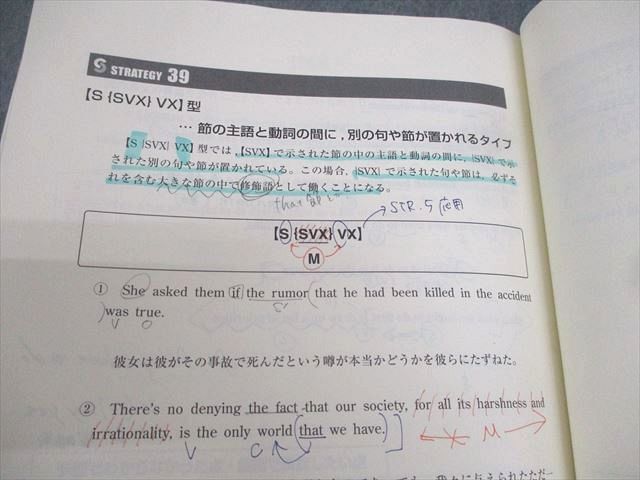 S STRATEGY 39
【S {SVX} VX】型
… 節の主語と動詞の間に，別の句や節が置かれるタイプ
【S {SVX} VX】型では，【SVX】で示された節の中の主語と動詞の間に，{SVX}で示
された別の句や節が置かれている。この場合，{SVX}で示された句や節は，必ずそ
れを含む大きな節の中で修飾語として働くことになる。
that 節
【S {SVX} VX】
STR.5 応用
M
① She asked them if the rumor that he had been killed in the accident
S'
was true.
V C
彼女は彼がその事故で死んだという噂が本当かどうかを彼らにたずねた。
② There's no denying the fact that our society, for all its harshness and
irrationality, is the only world that we have.
V C M